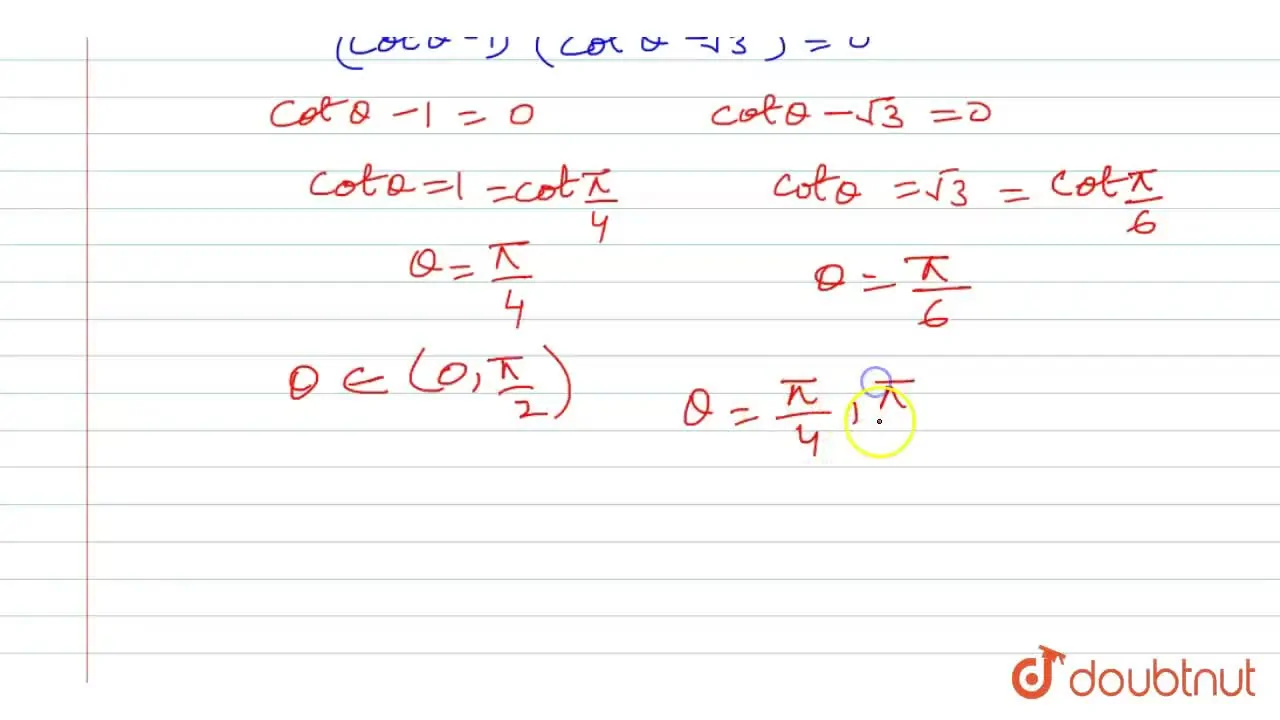 (cot θ - 1) (cot θ - √3) = 0
cot θ - 1 = 0 cot θ - √3 = 0
cot θ = 1 = cot π/4 cot θ = √3 = cot π/6
θ = π/4 θ = π/6
θ ∈ (0, π/2) θ = π/4, π
doubtnut